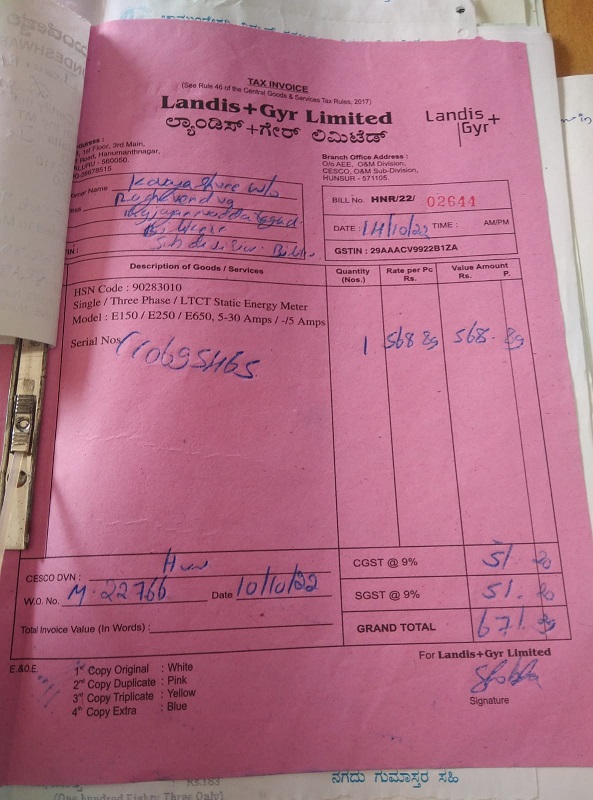 TAX INVOICE
(See Rule 46 of the Central Goods & Services Tax Rules, 2017)
Landis+Gyr Limited
ಲ್ಯಾಂಡಿಸ್+ಗೇರ್ ಲಿಮಿಟೆಡ್
Landis+
Gyr
1st Floor, 3rd Main,
Road, Hanumanthnagar,
560050.
Branch Office Address :
O/o AEE, O&M Division,
CESCO, O&M Sub-Division,
HUNSUR - 571105.
Name Kavyashree w/o
BILL No. HNR/22/ 02644
DATE : 14/10/22 TIME : AM/PM
GSTIN : 29AAACV9922B1ZA
Description of Goods / Services
Quantity
(Nos.)
Rate per Pc
Rs.
Value Amount
Rs. P.
HSN Code : 90283010
Single / Three Phase / LTCT Static Energy Meter
Model : E150 / E250 / E650, 5-30 Amps / -/5 Amps
Serial Nos 110695465
1 568 89 568. 89
CESCO DVN : Hun
W.O. No. M-22766 Date 10/10/22
Total Invoice Value (In Words) :
CGST @ 9% 51. 20
SGST @ 9% 51. 20
GRAND TOTAL 671. 29
E.&O.E.
1st Copy Original : White
2nd Copy Duplicate : Pink
3rd Copy Triplicate : Yellow
4th Copy Extra : Blue
For Landis+Gyr Limited
Signature
Rs.183
(One hundred Eighty Three Only)
ನಗದು ಗುಮಾಸ್ತರ ಸಹಿ